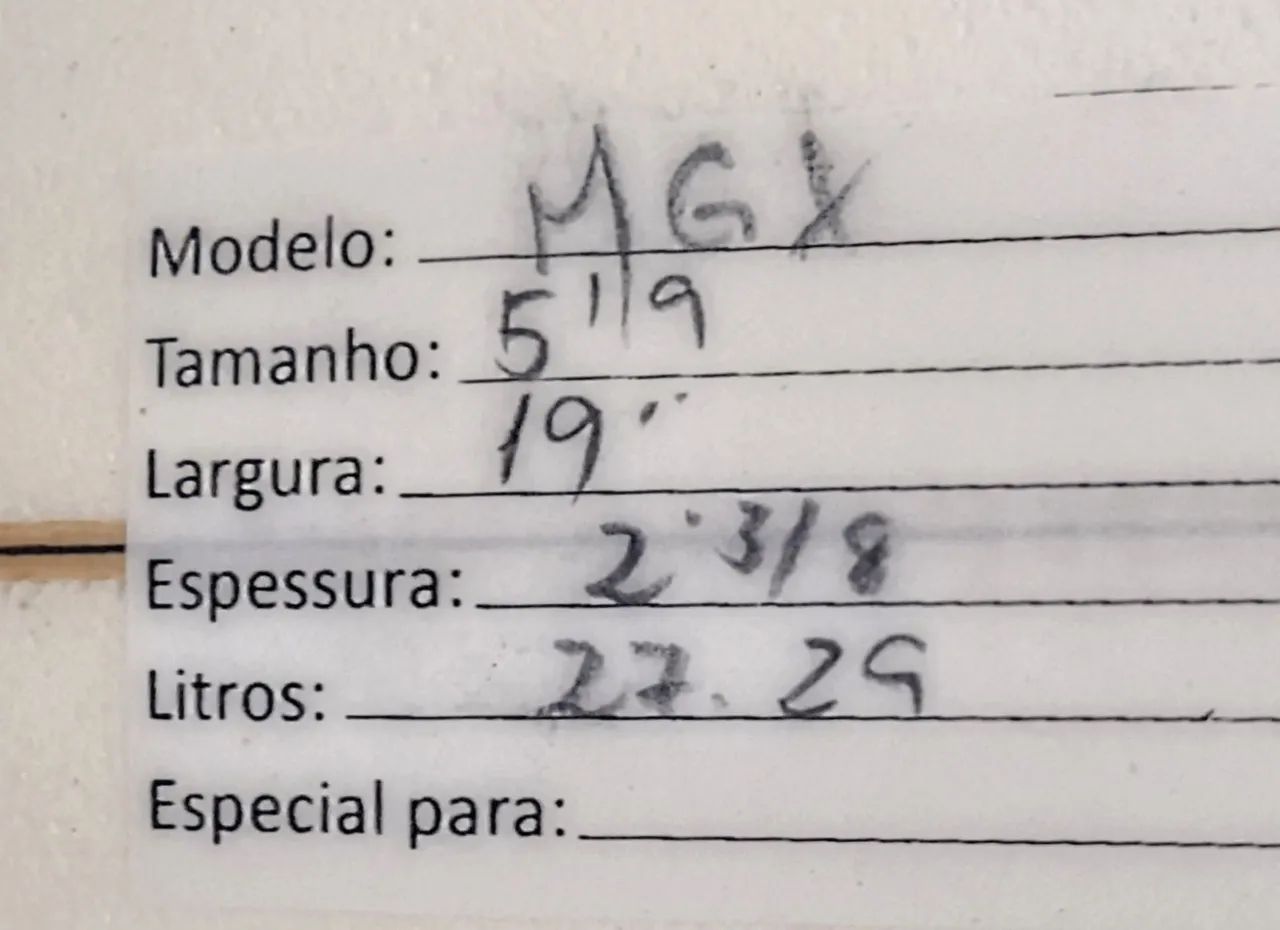 Modelo: MGX
Tamanho: 5'9
Largura: 19"
Espessura: 2 3/8
Litros: 27.29
Especial para: